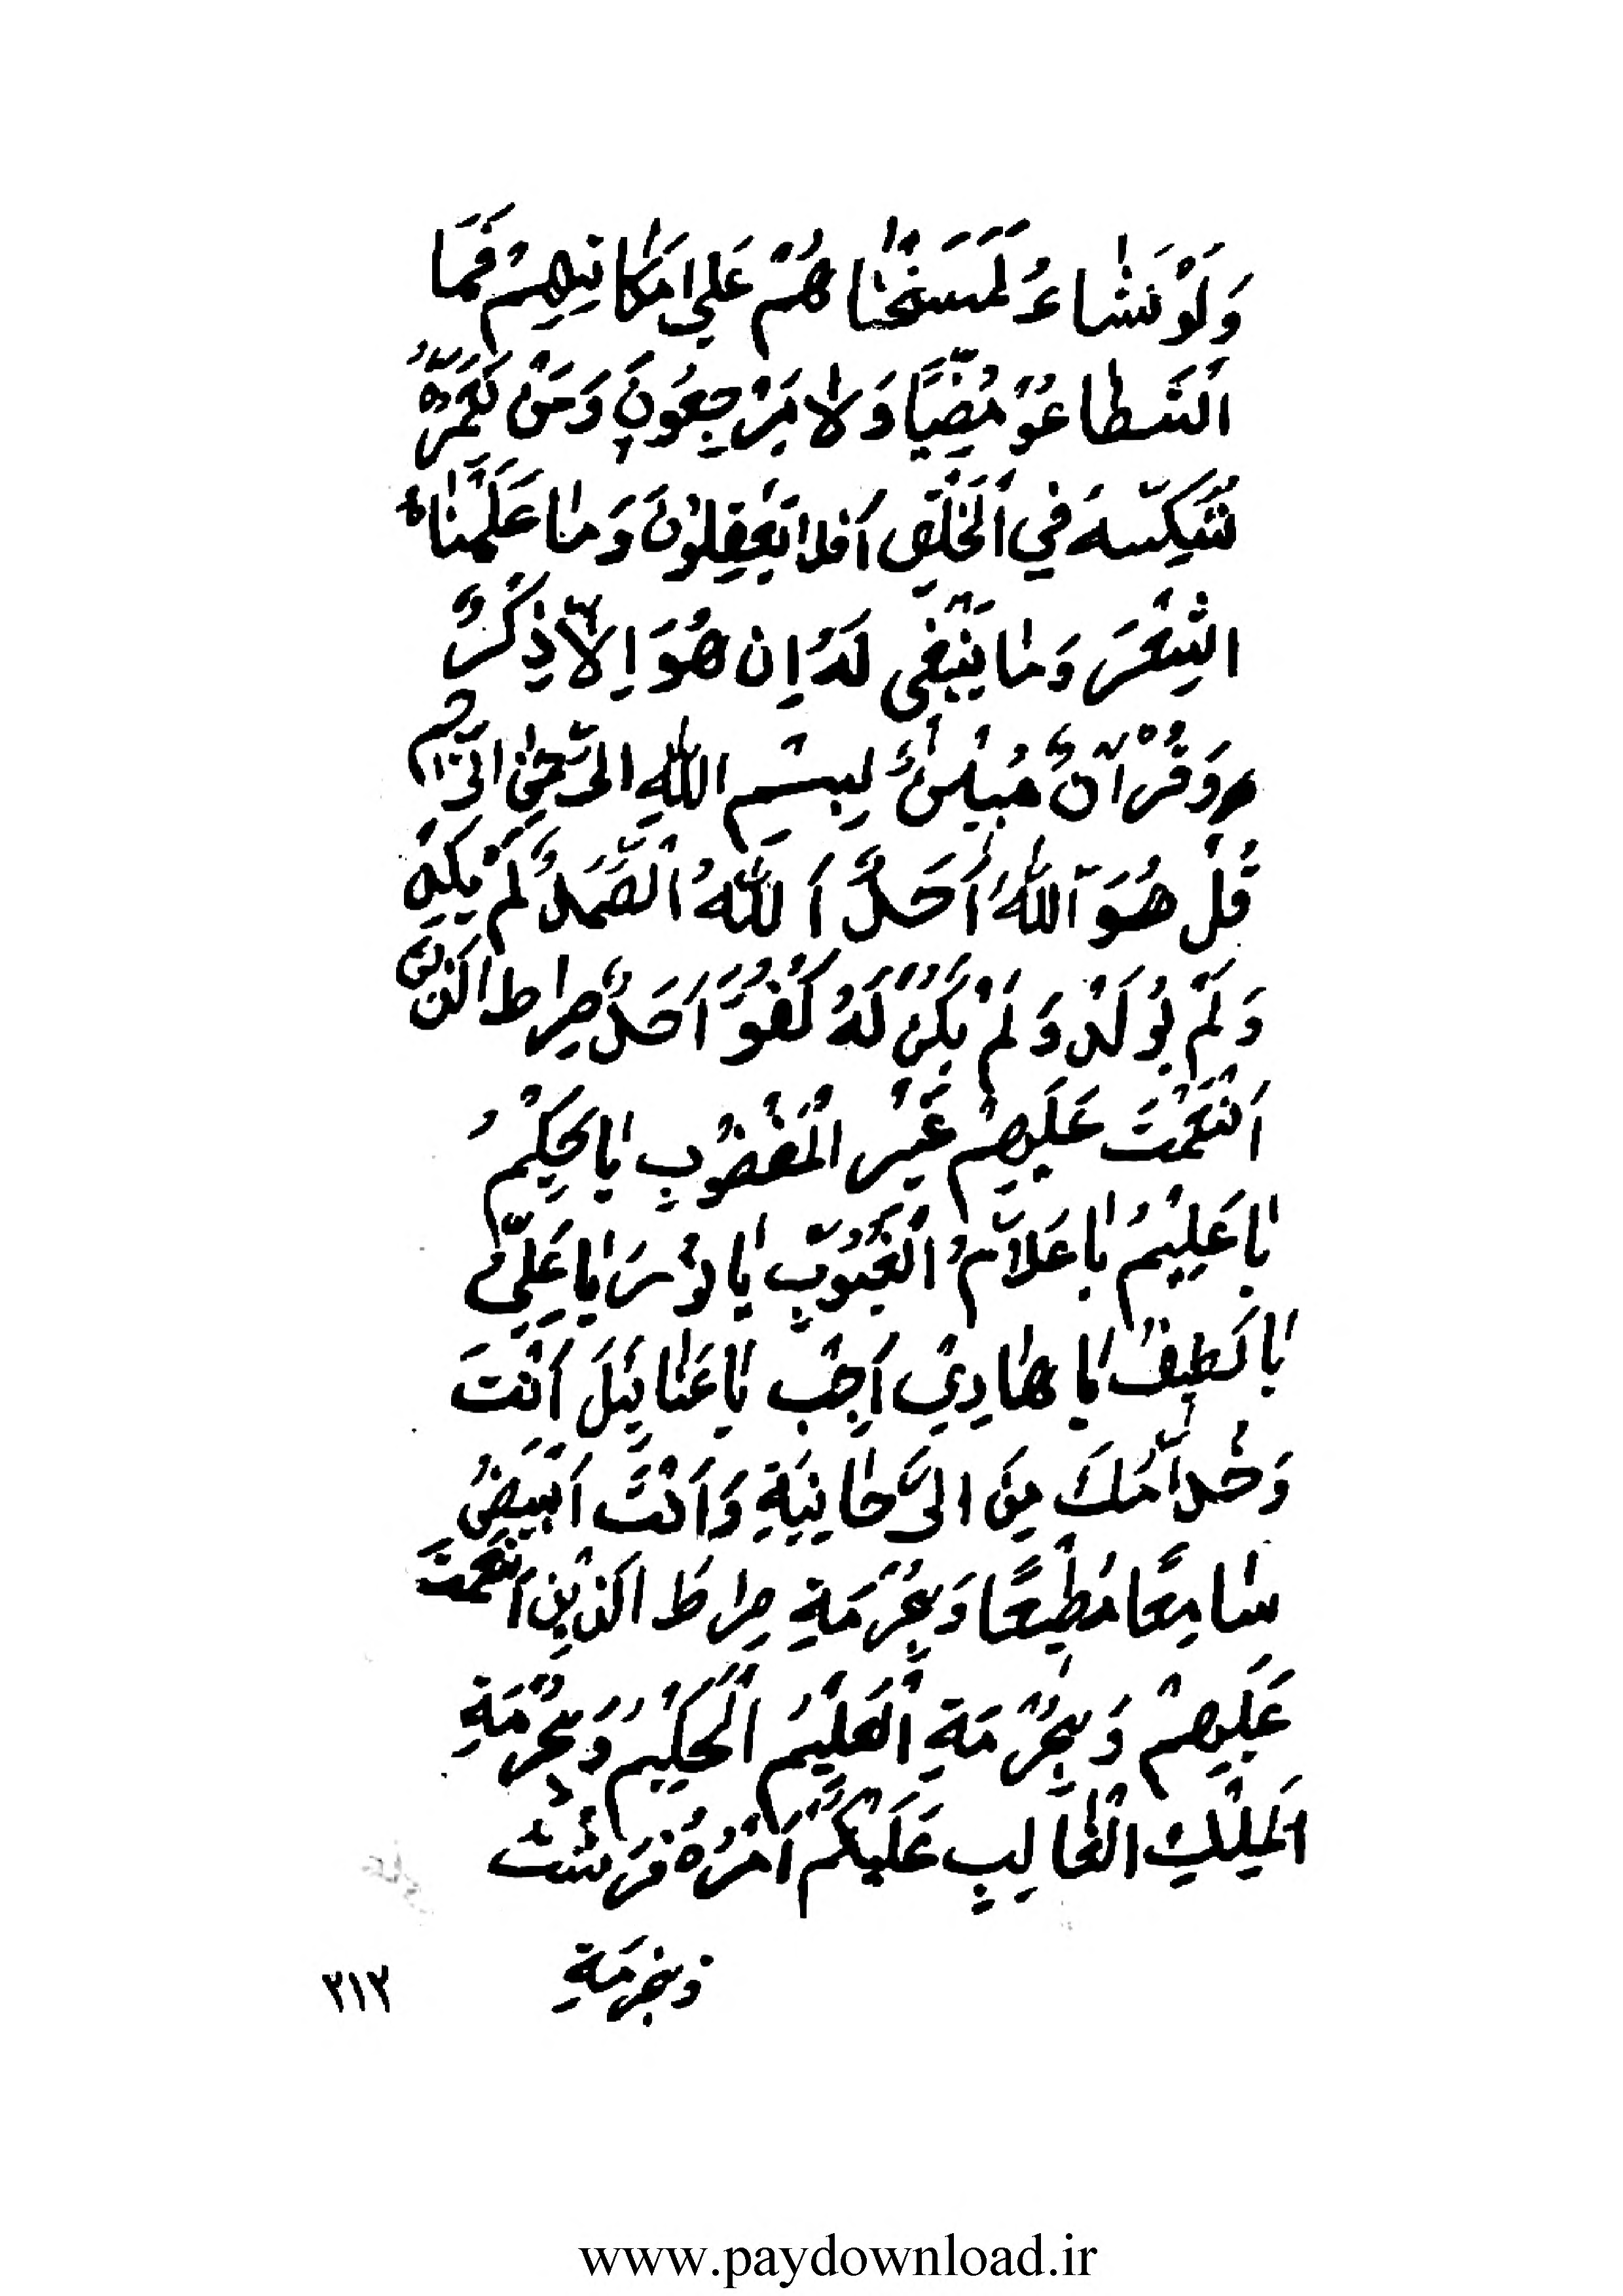 وَلَوْ نَشٰاءُ لَمَسَخْنٰاهُمْ عَلٰی مَکٰانَتِهِمْ فَمَا
اسْتَطاعُوْ مُضِیًّا وَلاٰ یَرْجِعُونَ وَمَنْ نُعَمِّرْهُ
نُنَکِّسْهُ فِي الْخَلْقِ اَفَلاٰ یَعْقِلُوْنَ وَمٰا عَلَّمْنٰاهُ
الشِعْرَ وَمٰا یَنْبَغی لَهُ اِن هُوَ اِلاّٰ ذِکْرٌ
وَقُرْآنٌ مُبِیْنٌ بِسْمِ اللّٰهِ الرَّحْمٰنِ الرَّحیمِ
قُلْ هُوَ اللّٰهُ اَحَدٌ اَللّٰهُ الْصَّمَدُ لَمْ یَلِدْ
وَلَمْ یُولَدْ وَلَمْ یَکُنْ لَهُ کُفُوًا اَحَدٌ صِراطَ الَّذینَ
اَنْعَمْتَ عَلَیهِمْ غَیْرِ الْمَغْضُوْبِ یٰا حَکِیْمُ
یٰا عَلِیْمُ یٰا عَلاّٰمُ الْغُیُوْبِ یٰا نُوْرُ یٰا عَلِیُّ
یٰا لَطیفُ یٰا هٰادِيْ اَجِبْ یٰا عَنٰایِیْلَ اَنْتَ
وَخُدّٰامُكَ مِنَ الرَّوحٰانِیَةِ وَاَنْتَ اَبْیَضُ
سٰامِعًا مُطِیْعًا وَبِحُرْمَةِ صِراطَ الَّذِیْنَ اَنْعَمْتَ
عَلَیهِمْ وَبِحُرْمَةِ الْعَلِیْمُ الْحَکِیْمُ وَبِحُرْمَةِ
اَلْمَلِكِ الْغٰالِبِ عَلَیْکُمْ اَمْرُهُ
وَبِحُرْمَةِ
۲۱۳
www.paydownload.ir